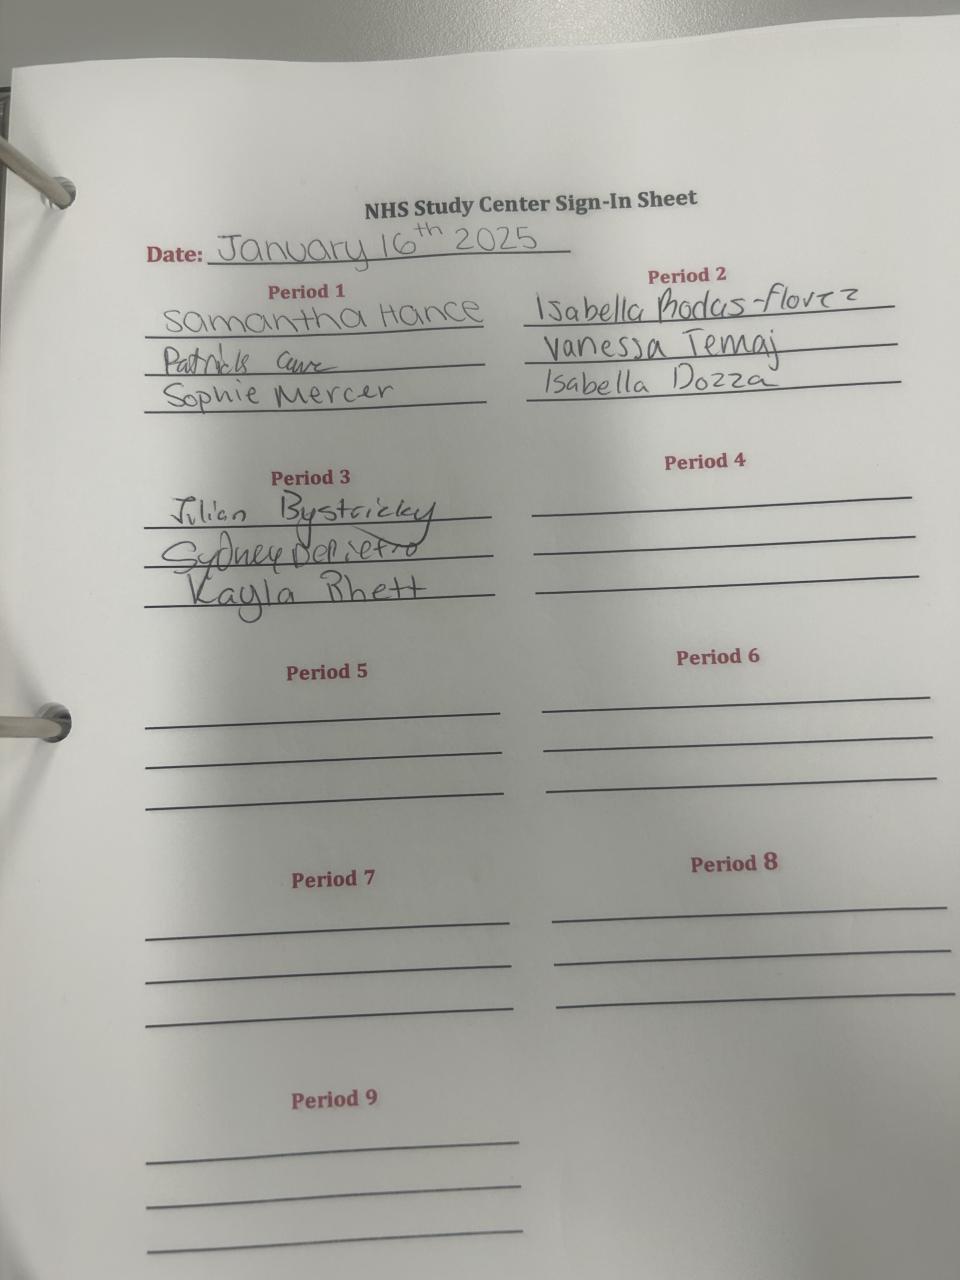 NHS Study Center Sign-In Sheet
Date: January 16th 2025
Period 1
Samantha Hance
Patrick
Sophie Mercer
Period 2
Isabella Rodas-florez
Vanessa Temaj
Isabella Dozza
Period 3
Julian Bystricky
Sydney Depietro
Kayla Rhett
Period 4
Period 5
Period 6
Period 7
Period 8
Period 9